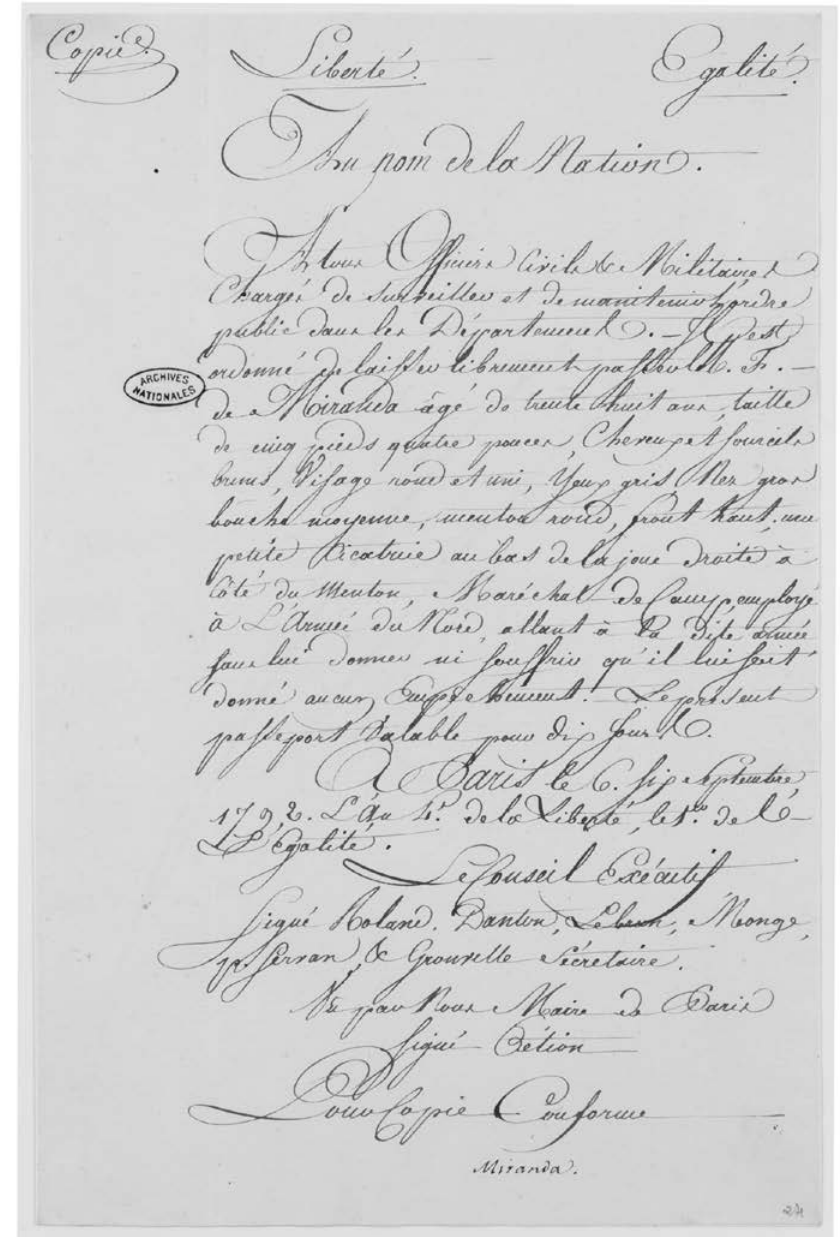 Copie.
Liberté. Egalité.
Au nom de la Nation.
A tous Officiers Civils & Militaires
Chargés de surveiller et de maintenir l'ordre
public dans les Départements. — Il est
ordonné de laisser librement passer le M. F. —
de Miranda âgé de trente huit ans, taille
de cinq pieds quatre pouces, Cheveux et sourcils
bruns, Visage rond et uni, Yeux gris Nez gros
bouche moyenne, menton rond, front haut, une
petite Cicatrice au bas de la joue droite à
Côté du Menton, Maréchal de Camp, employé
à L'Armée du Nord, allant à la dite armée
sans lui donner ni souffrir qu'il lui soit
donné aucun Empechement. — Le présent
passeport Valable pour dix jours.
A Paris le 6. six Septembre
1792. L'An 4e. de la Liberté, le 1er. de l'é
L'Egalité.
Le Conseil Exécutif
signé Roland. Danton, Lebrun, Monge,
Servan, & Grouvelle Sécretaire.
Vu par Nous Maire de Paris
signé Pétion
Pour Copie Conforme
Miranda.
ARCHIVES
NATIONALES
24